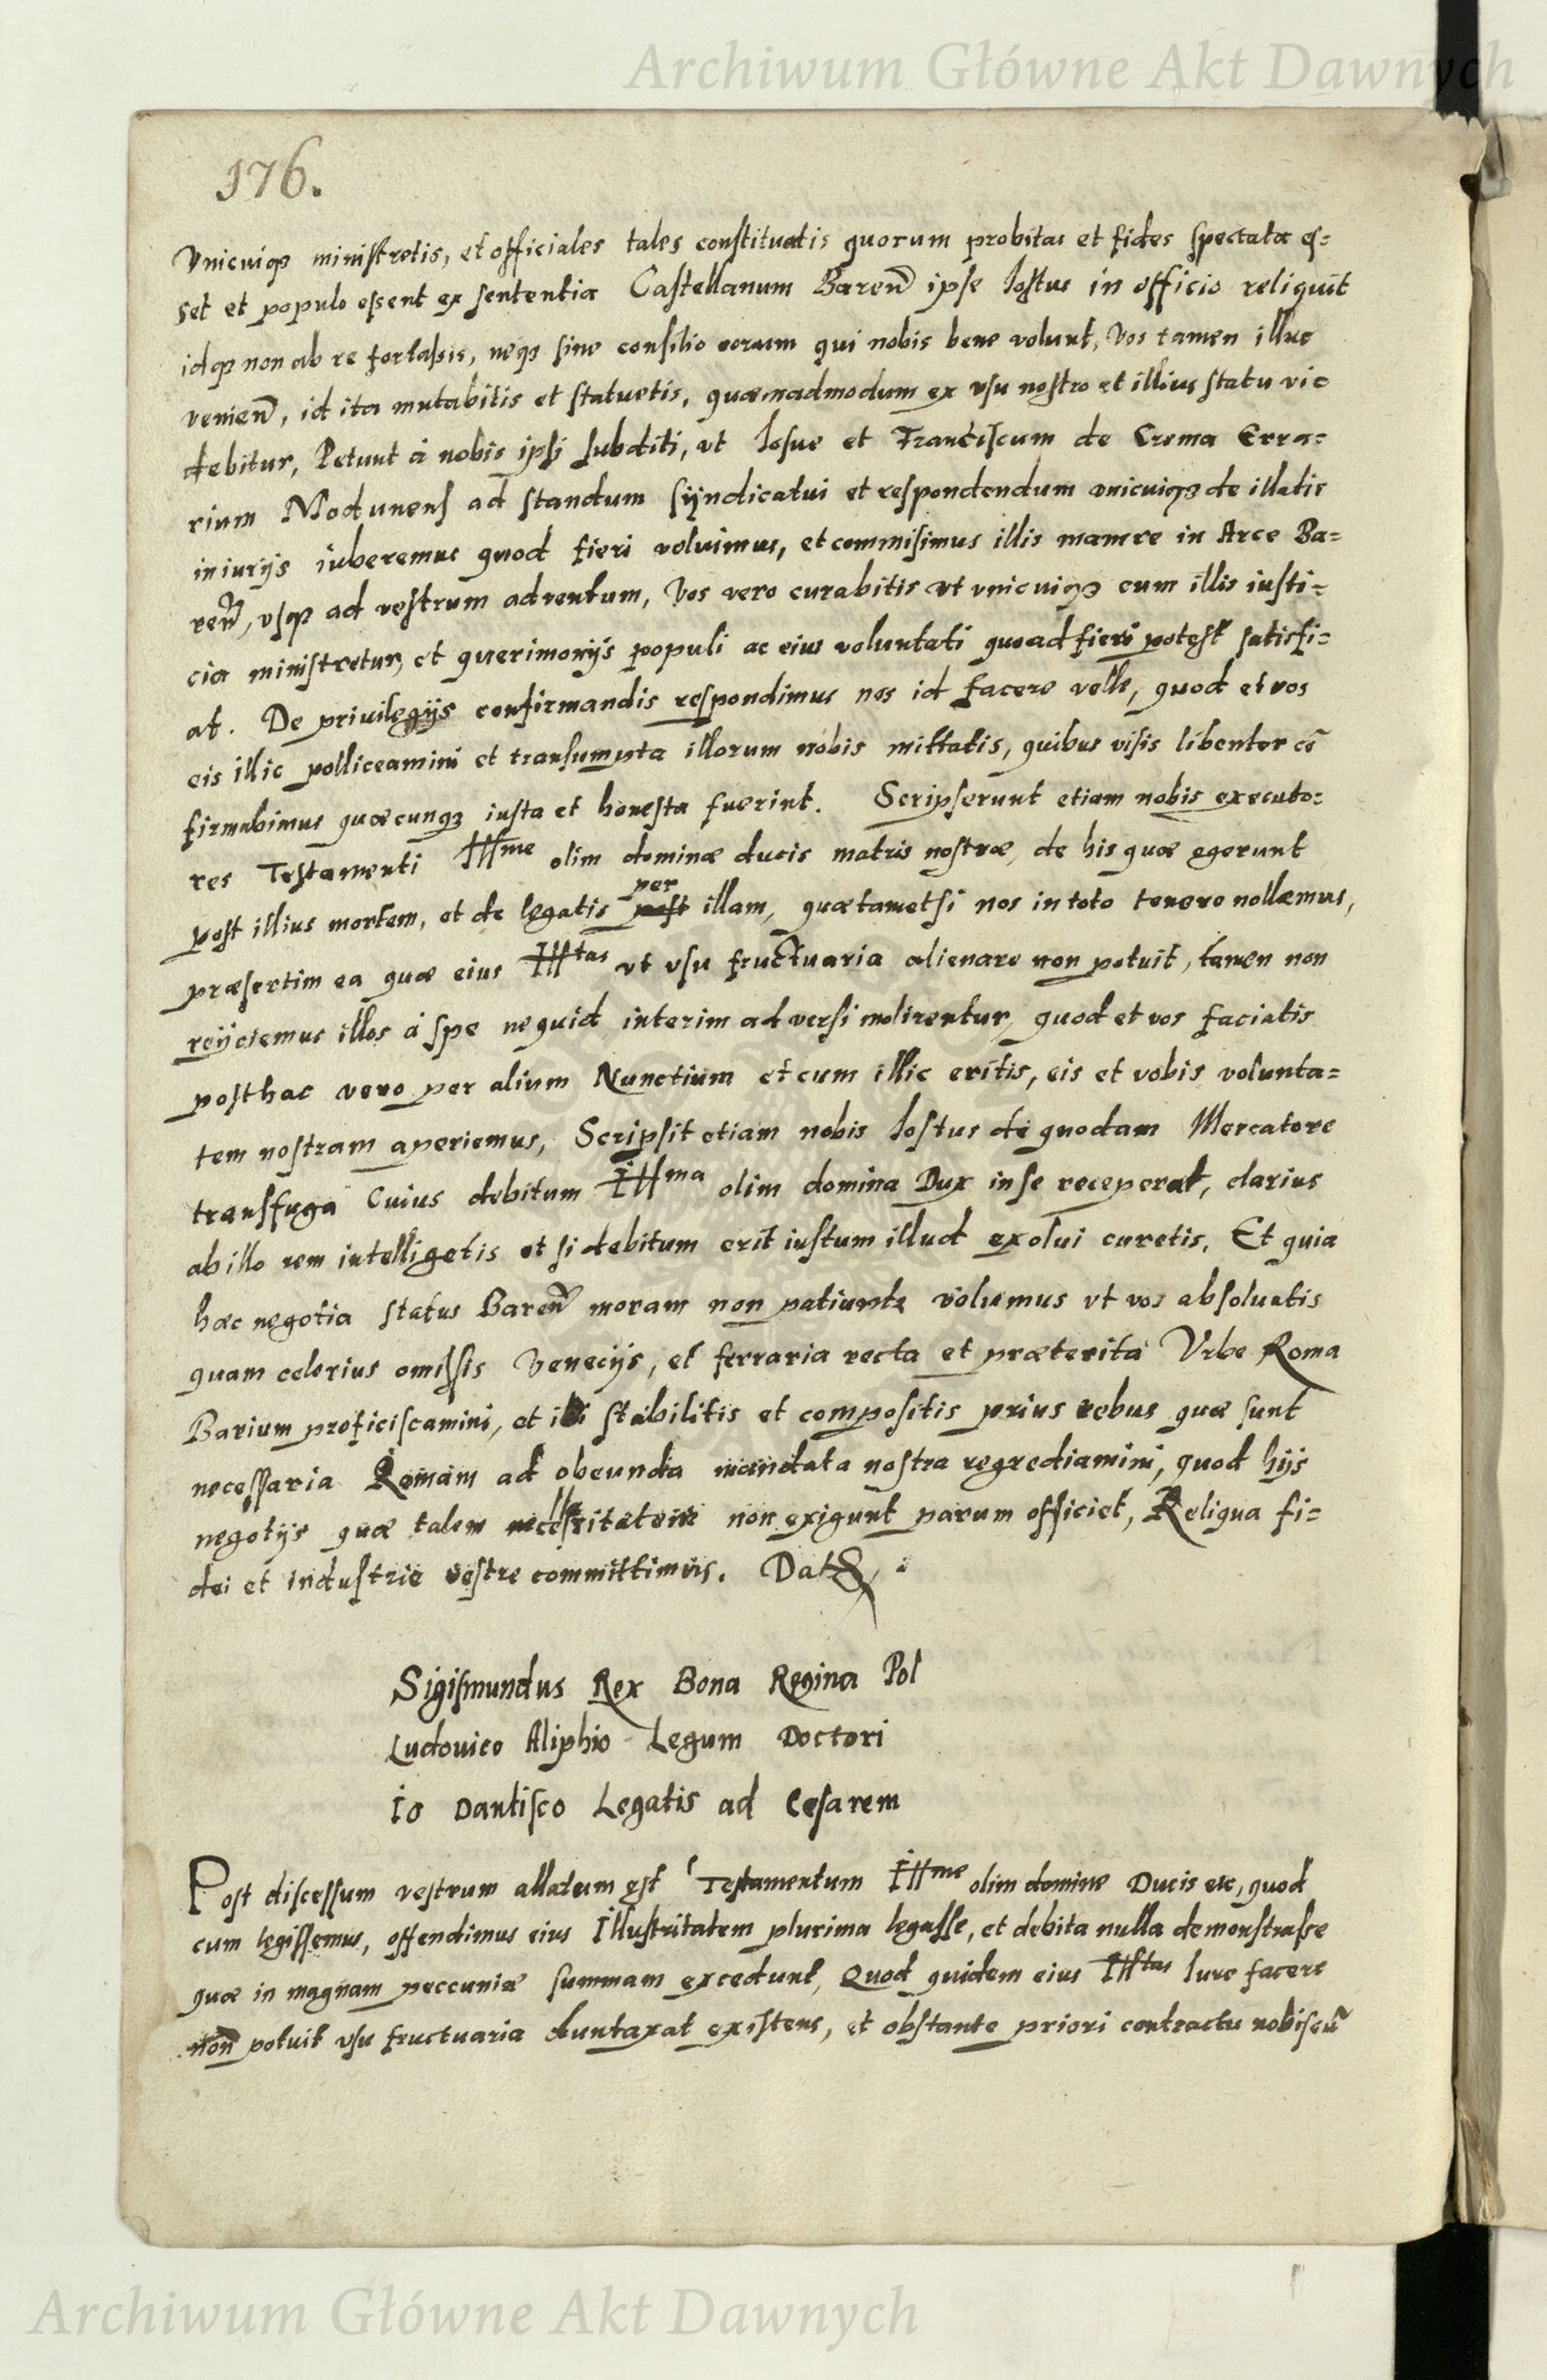 Archiwum Główne Akt Dawnych
176.
Vnicuiqȝ ministretis, et officiales tales constituatis quorum probitas et fides spectata es=
set et populo essent ex sententia Castellanum Bareñ ipse Iostus in officio reliquit
idqȝ non ab re fortassis, neqȝ sine consilio eorum qui nobis bene volunt, Vos tamen illuc
venieñ, id ita mutabitis et statuetis, quæmadmodum ex vsu nostro et illius statu vi=
debitur, Petunt à nobis ipsi subditi, vt Iosue et Franciscum de Crema Erra=
rium Modunens ad standum sijndicatui et respondendum vnicuiqȝ de illatis
iniurijs iuberemus quod fieri voluimus, et commisimus illis manere in Arce Ba=
reñ, vsqȝ ad vestrum adventum, Vos vero curabitis vt vnicuiqȝ cum illis iusti=
cia ministretur, et querimonijs populi ac eius voluntati quoad fieri potest satisfi=
at. De priuilegijs confirmandis respondimus nos id facere velle, quod et vos
eis illic polliceamini et transumpta illorum nobis mittatis, quibus visis libenter cõ
firmabimus quæcunqȝ iusta et honesta fuerint. Scripserunt etiam nobis executo=
res Testamenti Illme olim dominæ ducis matris nostræ, de his quæ egerunt
post illius mortem, et de legatis post per illam, quæ tametsi nos in toto tenere nollemus,
præsertim ea quæ eius Illtas vt vsu fructuaria alienare non potuit, tamen non
reijciemus illos à spe ne quid interim adversi molirentur, quod et vos faciatis
posthac vero per alium Nunctium et cum illic eritis, eis et vobis volunta=
tem nostram aperiemus, Scripsit etiam nobis Iostus de quodam Mercatore
transfuga Cuius debitum Illma olim domina Dux in se receperat, clarius
ab illo rem intelligetis et si debitum erit iustum illud exolui curetis. Et quia
hæc negotia status Bareñ moram non patiuntr volumus vt vos absoluatis
quam celerius omissis Venecijs, et ferraria recta et præterita Vrbe Roma
Barium proficiscamini, et ibi stabilitis et compositis prius rebus quæ sunt
necessaria Romam ad obeunda mandata nostra regrediamini, quod hijs
negotijs quæ talem celleritatem non exigunt parum officiet, Reliqua fi=
dei et industrie vestre committimus. Dat
Sigismundus Rex Bona Regina Pol
Ludouico Aliphio Legum Doctori
Io Dantisco Legatis ad Cesarem
Post discessum vestrum allatum est Testamentum Illme olim domine Ducis etc, quod
cum legissemus, offendimus eius Illustritatem plurima legasse, et debita nulla demonstrasse
quæ in magnam peccuniæ summam excedunt, Quod quidem eius Illtas Iure facere
non potuit vsu fructuaria duntaxat existens, et obstante priori contractu nobiscũ
Archiwum Główne Akt Dawnych